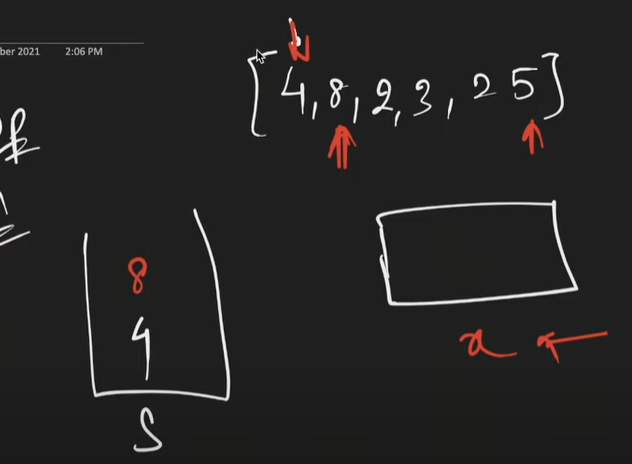 ber 2021 2:06 PM
[4,8,2,3,2 5]
8
4
S
x